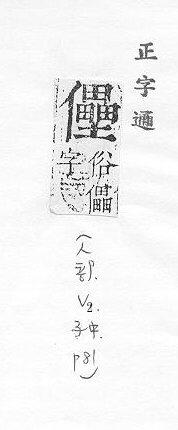 正字通
俗儡
字
(人部.
V2.
子中.
P81)